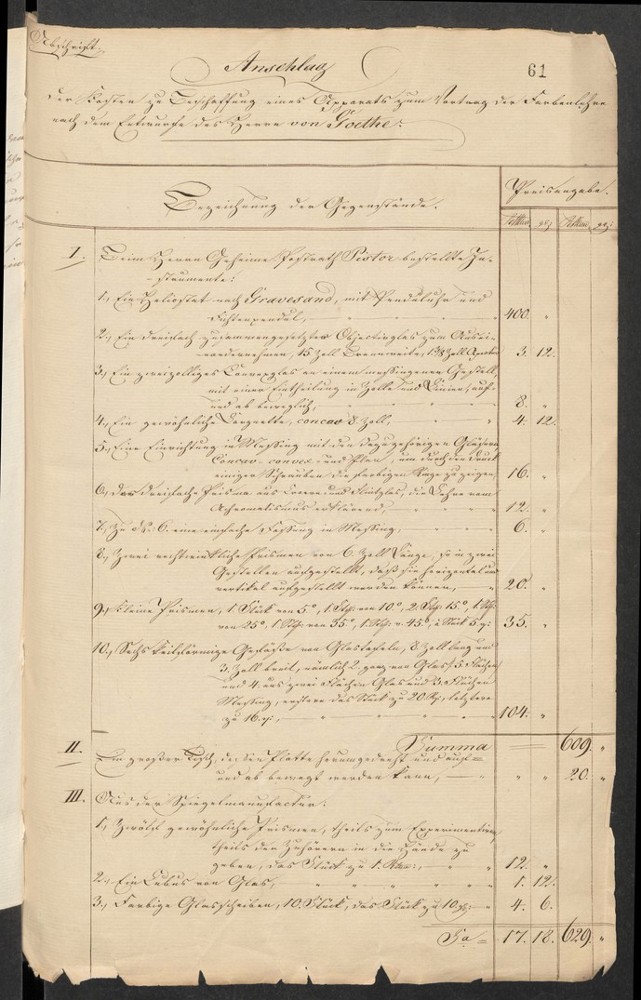 Abschrift.
Anschlag
61
der Kosten zu Beschaffung eines Apparats zum Vortrag der Farbenlehre
nach dem Entwurfe des Herrn von Goethe.
Bezeichnung der Gegenstände.
Preisangabe.
I. Beim Herrn Geheime Postrath Pistor bestellte In-
strumente:
1., Ein Heliostat nach Gravesand, mit Pendeluhr und
400. "
2., Ein dreifach zusammengesetztes Objectivglas zum
15 Zoll Brennweite, 3. 12.
3., Ein zweizölliges Convexglas an einem messingenen Gestell,
mit einer Eintheilung in Zolle und Linien, auf-
und ab beweglich, 8. "
4., Ein gewöhnliche Lorgnette, concav 8 Zoll, 4. 12.
5., Eine Einrichtung in Messing mit den dazugehörigen Gläsern
Concav-convex und Plan, um durch den Druck
einiger Schrauben die farbigen Ringe zu zeigen, 16. "
6., Das dreifache Prisma aus Crown und Flintglas, die Lehre vom
Achromatismus erklärend, 12. "
7., Zu No. 6. eine einfache Fassung in Messing, 6. "
8., Zwei rechtwinkliche Prismen von 6. Zoll Länge, so in zwei
Gestellen aufgestellt, daß sie horizontal und
vertikal aufgestellt werden können, 20. "
9., Kleine Prismen, 1 Stück von 5°, 1. Stk. von 10°, 2. Stk. 15°, 1 Stk.
von 25°, 1. Stk. von 35°, 1. Stk. v. 45°, à Stück 5 35. "
10., Sechs keilförmige Gefäße von Glastafeln, 8 Zoll lang und
3. Zoll breit, nämlich 2. ganz von Glas, 5 Flächen
und 4. aus zwei Flächen Glas und 3. Flächen
Messing, erstere das Stück zu 20 letztere
zu 16. 104. "
Summa 609. "
II. Ein großer Tisch, dessen Platte herumgedreht und auf-
und ab bewegt werden kann, " " 20. "
III. Aus der Spiegelmanufactur:
1., Zwölf gewöhnliche Prismen, theils zum Experimentiren,
theils den Zuhörern in die Hände zu
geben, das Stück zu 1. 12. "
2., Ein Cubus von Glas, 1. 12.
3., Farbige Glasscheiben, 10. Stück, das Stück zu 10 4. 6.
Sa = 17. 18. 629. "